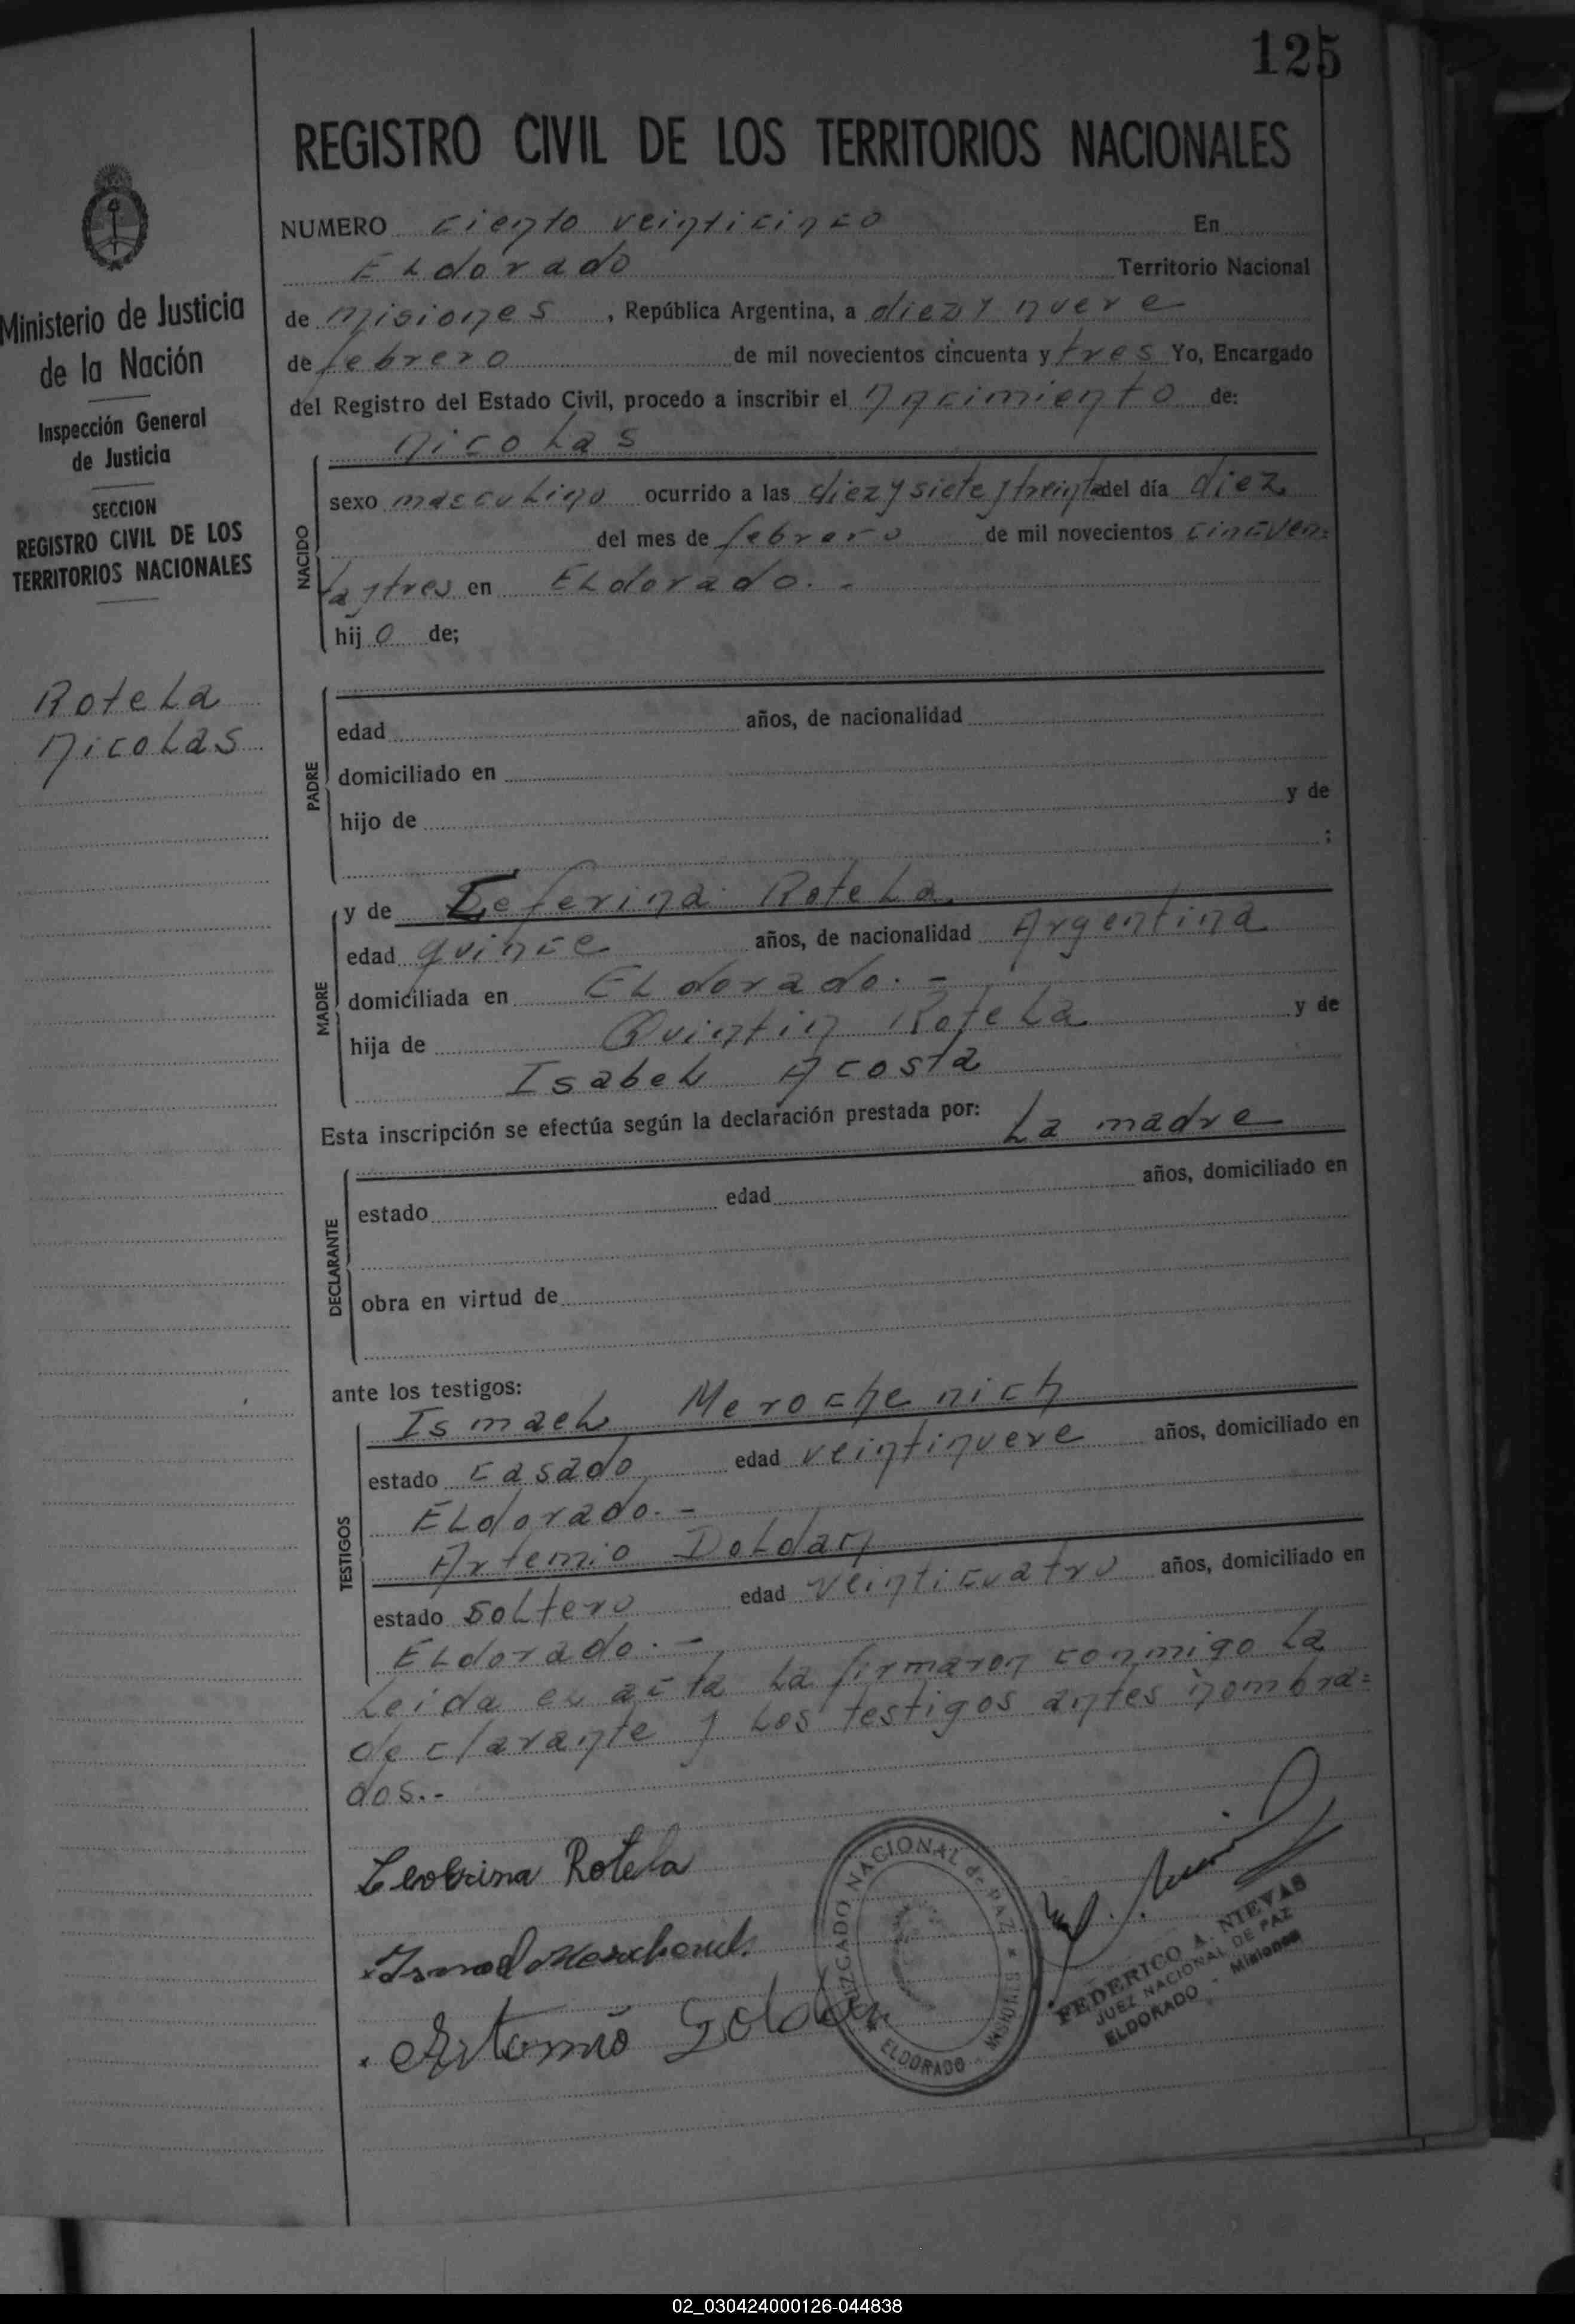 125
REGISTRO CIVIL DE LOS TERRITORIOS NACIONALES
Ministerio de Justicia
de la Nación
Inspección General
de Justicia
SECCION
REGISTRO CIVIL DE LOS
TERRITORIOS NACIONALES
Rotela
Nicolas
NUMERO ciento veinticinco En
ELdorado Territorio Nacional
de Misiones, República Argentina, a diez y nueve
de febrero de mil novecientos cincuenta y tres Yo, Encargado
del Registro del Estado Civil, procedo a inscribir el nacimiento de:
Nicolas
NACIDO
sexo masculino ocurrido a las diez y siete y treinta del día diez
del mes de febrero de mil novecientos cincuen=
ta y tres en ELdorado.-
hijo de;
PADRE
edad años, de nacionalidad
domiciliado en
hijo de y de
;
MADRE
y de Ceferina Rotela
edad quince años, de nacionalidad Argentina
domiciliada en ELdorado.-
hija de Quintin Rotela y de
Isabel Acosta
Esta inscripción se efectúa según la declaración prestada por: La madre
DECLARANTE
estado edad años, domiciliado en
obra en virtud de
ante los testigos:
TESTIGOS
Ismael Merochenich
estado casado edad veintinueve años, domiciliado en
ELdorado.-
Artemio Doldan
estado soltero edad veinticuatro años, domiciliado en
ELdorado.-
Leida el acta la firmaron conmigo la
declarante y los testigos antes nombra=
dos.-
Rotela
JUZGADO NACIONAL de PAZ * MISIONES
ELDORADO
FEDERICO A. NIEVAS
JUEZ NACIONAL DE PAZ
ELDORADO - Misiones
02_030424000126-044838